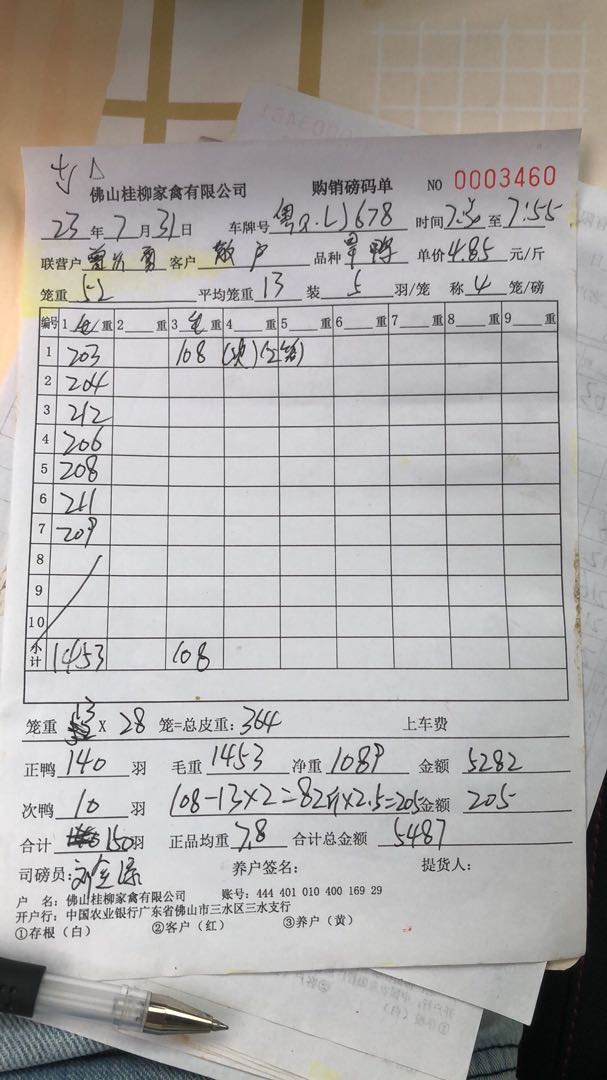 佛山桂柳家禽有限公司 购销磅码单 NO 0003460
23年7月31日 车牌号 粤 678 时间7:30至7:55
联营户 客户 散户 品种 鸭 单价4.85元/斤
笼重52 平均笼重13 装5羽/笼 称4笼/磅
编号 1毛重 2重 3毛重 4重 5重 6重 7重 8重 9重
1 203 108 (次)(2笼)
2 204
3 212
4 206
5 208
6 211
7 209
8
9
10
小计 1453 108
笼重 13 X 28 笼=总皮重:364 上车费
正鸭140羽 毛重1453 净重1089 金额5282
次鸭10羽 108-13×2=82斤×2.5=205 金额205
合计150羽 正品均重7.8 合计总金额5487
司磅员: 养户签名: 提货人:
户 名:佛山桂柳家禽有限公司 账号:444 401 010 400 169 29
开户行:中国农业银行广东省佛山市三水区三水支行
①存根(白) ②客户(红) ③养户(黄)